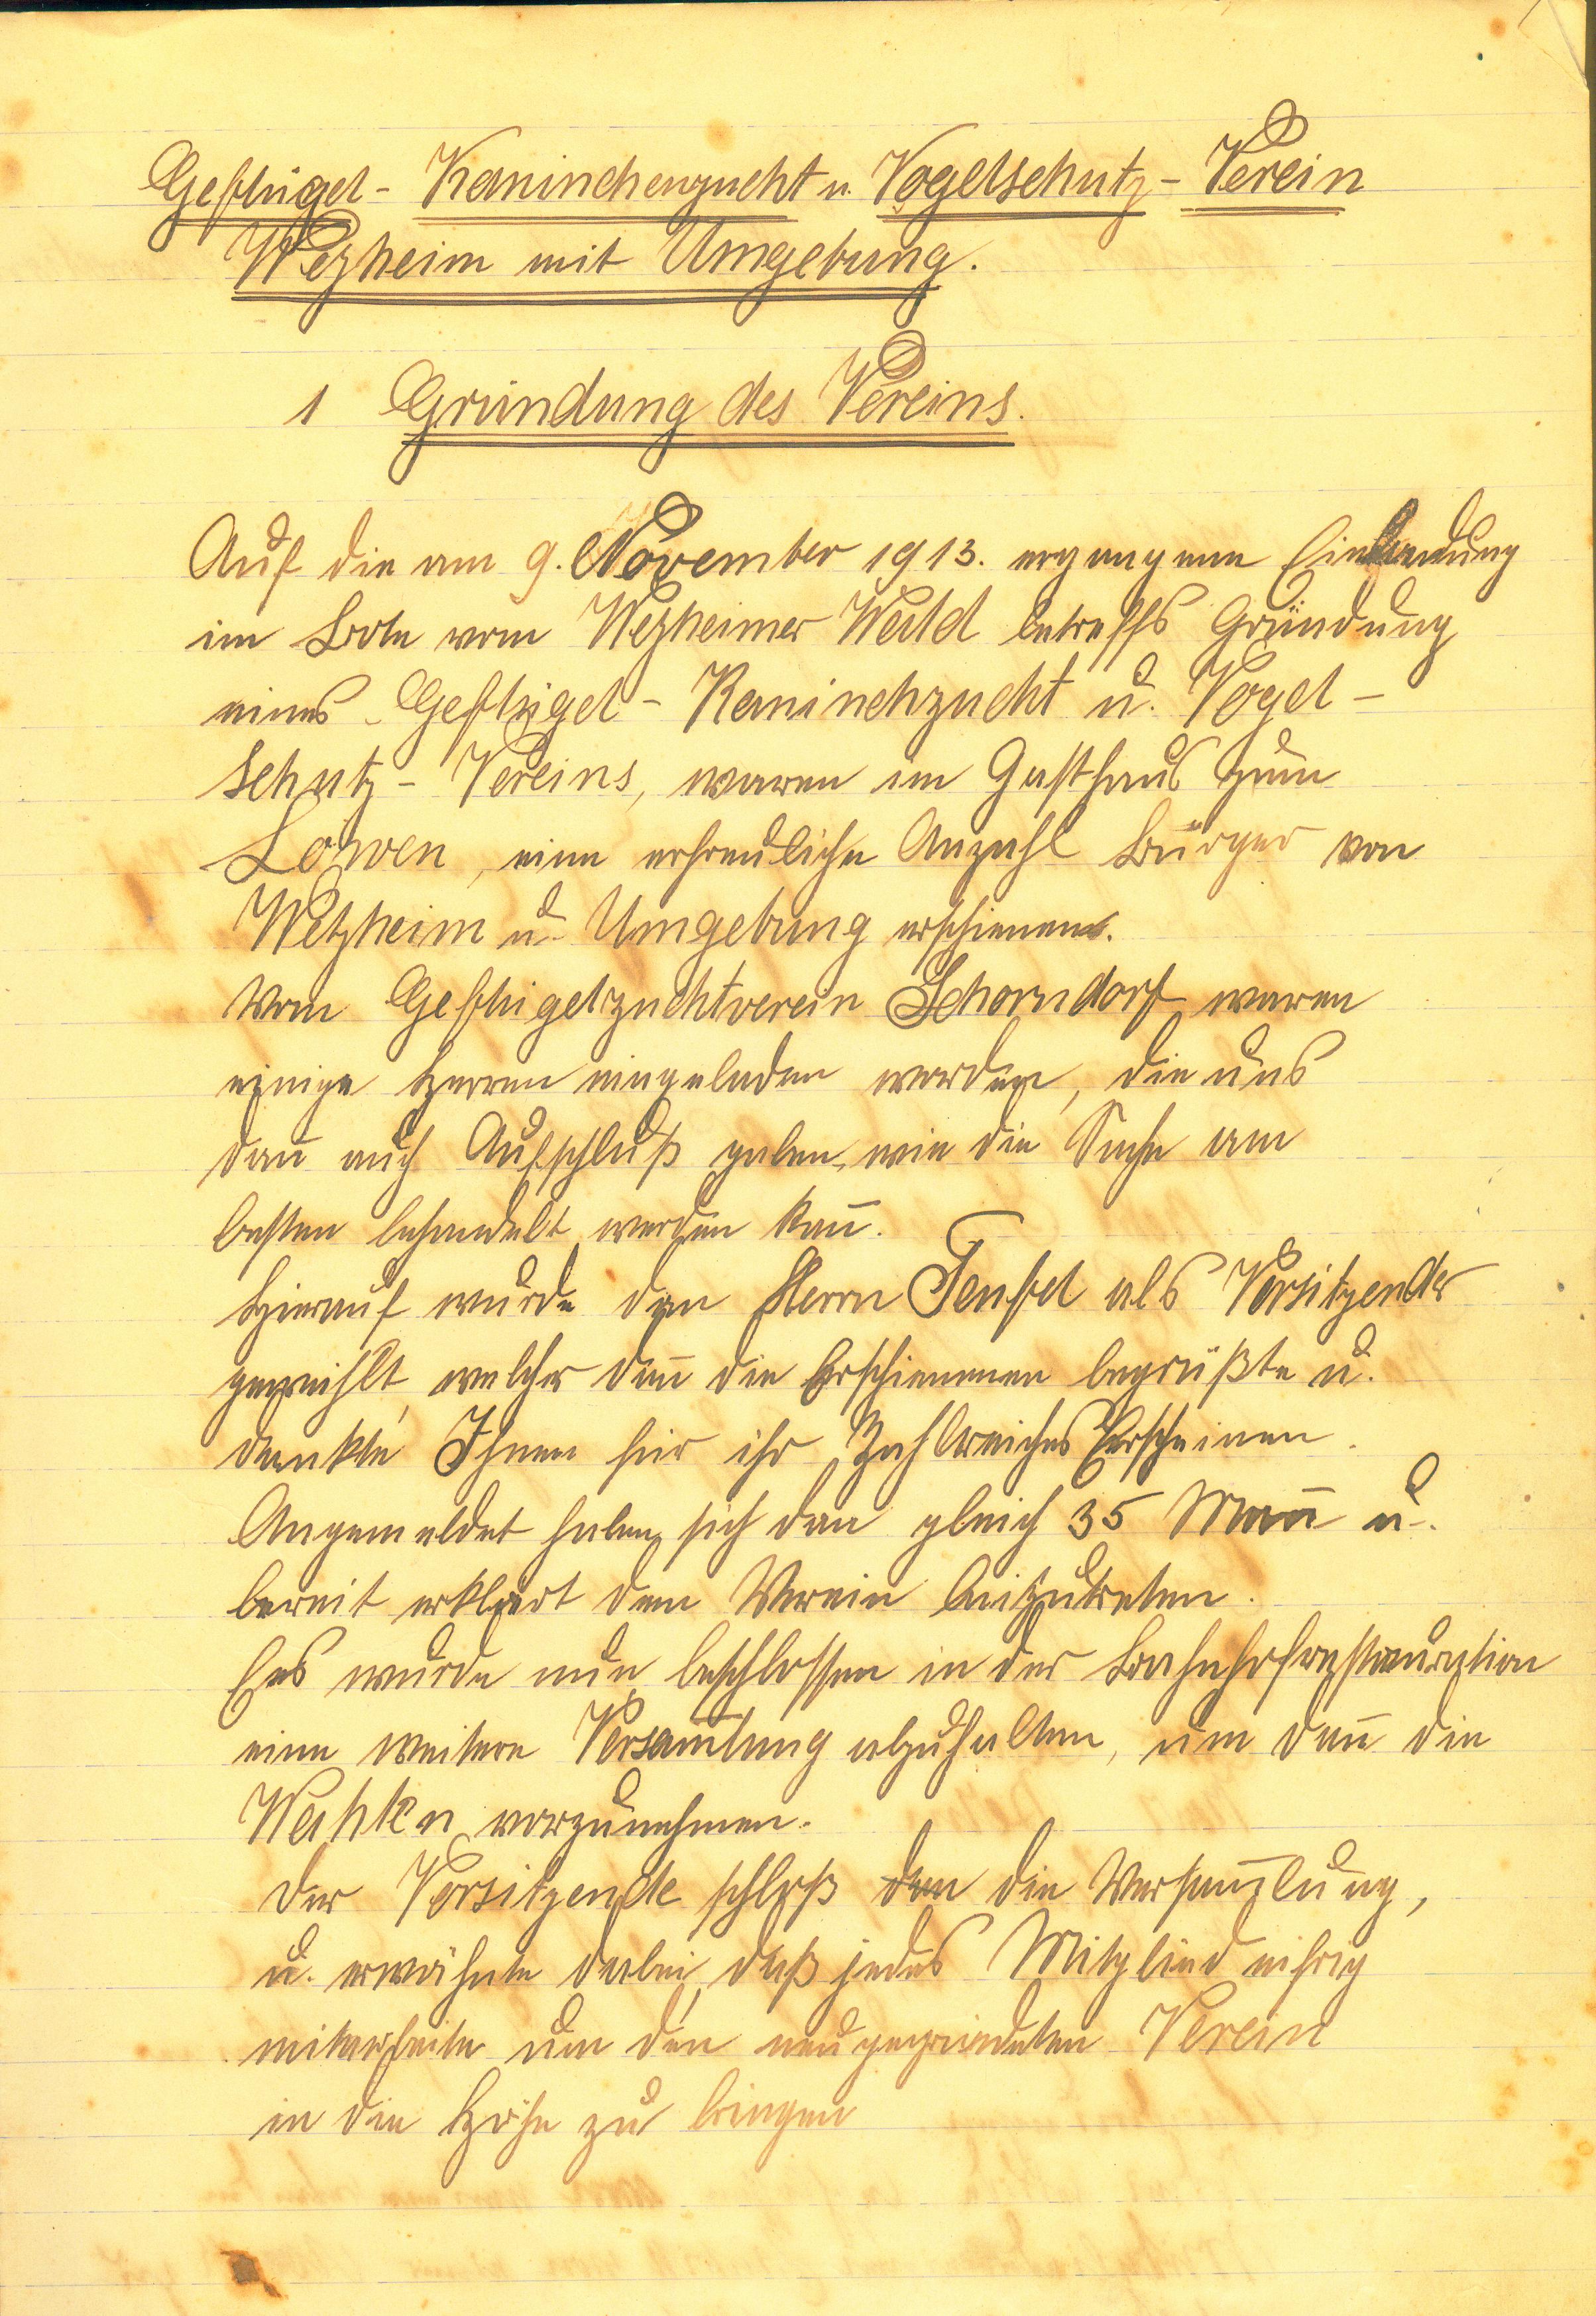 Geflügel- Kaninchenzucht u. Vogelschutz- Verein
Welzheim mit Umgebung.
1 Gründung des Vereins.
Auf die am 9. November 1913. ergangene Einladung
im Bote vom Welzheimer Wald betreffs Gründung
eines Geflügel- Kaninchzucht u. Vogel-
schutz- Vereins, waren im Gasthaus zum
Löwen, eine erfreuliche Anzahl Bürger von
Welzheim u. Umgebung erschienen.
Vom Geflügelzuchtverein Schorndorf waren
einige Herren eingeladen worden, die uns
dañ auch Aufschluß gaben, wie die Sache am
besten behandelt werden kañ.
Hierauf wurde dan Herrn Teufel als Vorsitzender
gewählt, welcher dañ die Erschienenen begrüßte u.
dankte Ihnen für ihr Zahlreiches Erscheinen.
Angemeldet haben sich dan gleich 35 Mañ u.
bereit erklärt dem Verein beizutreten.
Es wurde nun beschlossen in der Bahnhofrestauration
eine weitere Versam̄lung abzuhalten, um dañ die
Wahlen vorzunehmen.
Der Vorsitzende schloß dan die Versam̄lung,
u. erwähnte dabei, daß jedes Mitglied eifrig
mitarbeite um den neugegründeten Verein
in die Höhe zu bringen